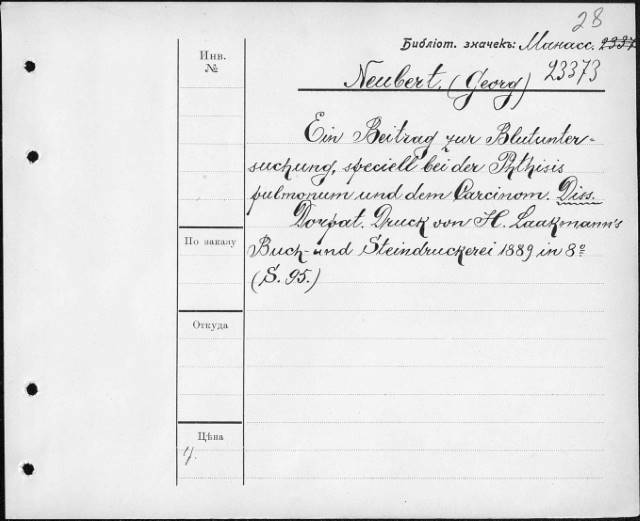 28
Библіот. значекъ: Манасс. 2337
23373
Инв.
№
Neubert, (Georg)
Ein Beitrag zur Blutunter-
suchung, speciell bei der Phthisis
pulmonum und dem Carcinom. Diss.
Dorpat. Druck von H. Laakmann's
Buch- und Steindruckerei 1889 in 8º
(S. 95.)
По заказу
Откуда
Цѣна